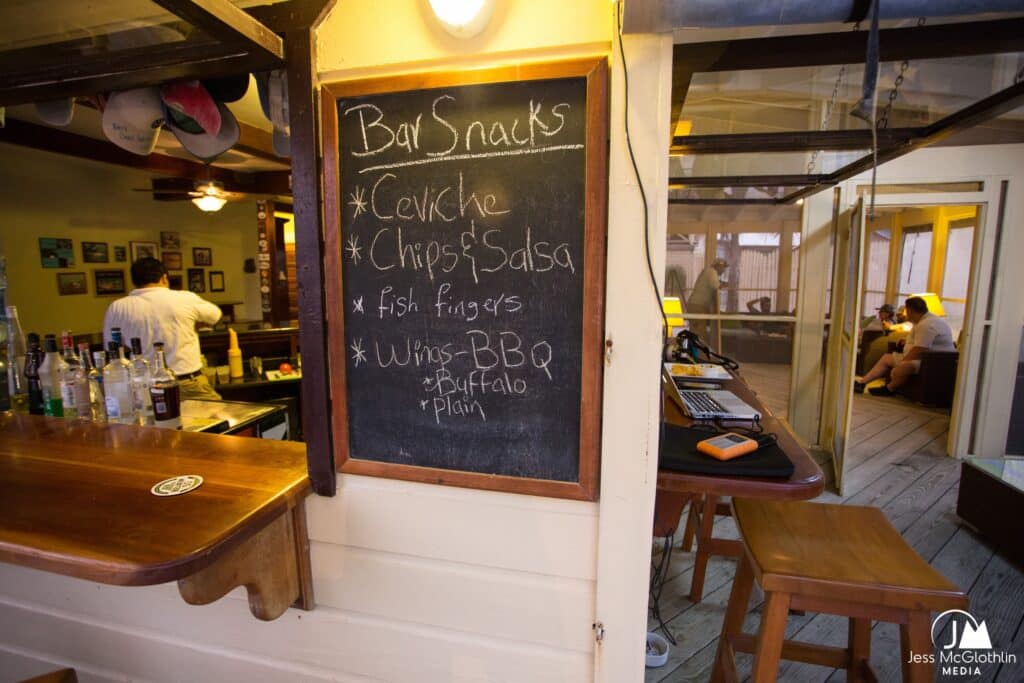 Bar Snacks
* Ceviche
* Chips & Salsa
* fish fingers
* Wings-BBQ
* Buffalo
* Plain
JM
Jess McGlothlin
MEDIA